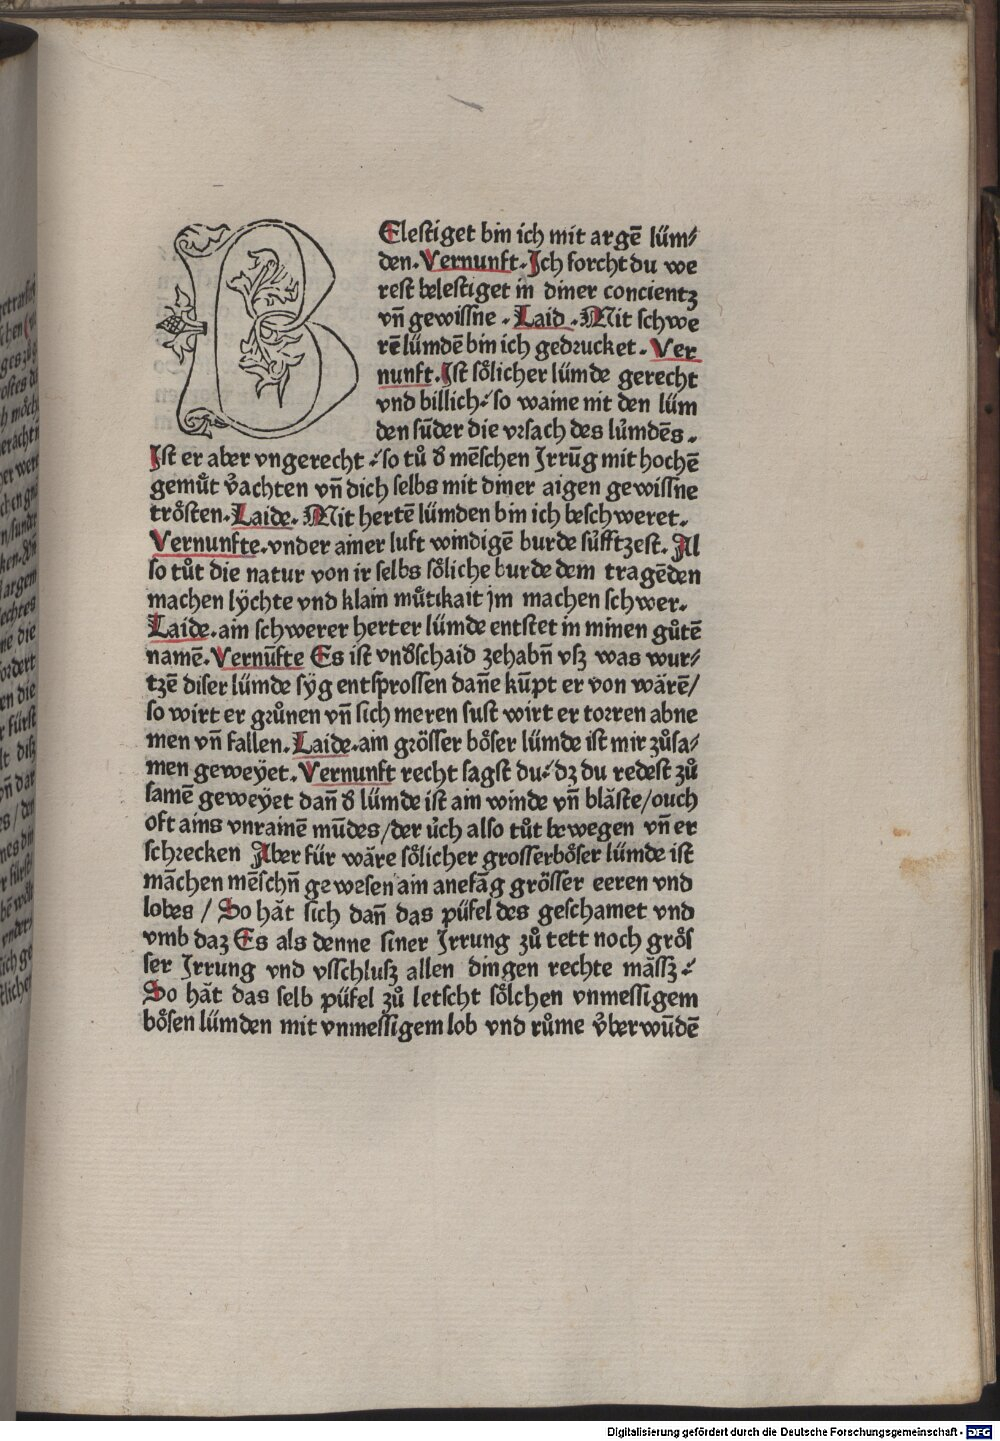 BElestiget bin ich mit argē lüm⸗
den. Vernunft. Ich forcht du we
rest belestiget in diner concientz
vñ gewissne. Laid. Mit schwe
rē lümdē bin ich gedrucket. Ver
nunft. Ist soͤlicher lümde gerecht
vnd billich⸗ so waine nit den lüm
den sūder die vrsach des lümdēs.
Ist er aber vngerecht⸗ so tuͦ d̕ mēschen Irrūg mit hochē
gemuͤt v̕achten vñ dich selbs mit diner aigen gewissne
troͤsten. Laide. Mit hertē lümden bin ich beschweret.
Vernunfte. vnder ainer luft windigē burde süfftzest. Al
so tuͦt die natur von ir selbs soͤliche burde dem tragēden
machen lÿchte vnd klain muͤtikait jm machen schwer.
Laide. ain schwerer herter lümde entstet in minen guͦtē
namē. Vernūfte Es ist vnd̕schaid zehabñ vsz was wur⸗
tzē diser lümde sÿg entsprossen dañe kūpt er von wärē/
so wirt er gruͤnen vñ sich meren sust wirt er torren abne
men vñ fallen. Laide. ain groͤsser boͤser lümde ist mir zuͦsa⸗
men geweÿet. Vernunft recht sagst du⸗ dz du redest zuͦ
samē geweÿet dañ d̕ lümde ist ain winde vñ blaͤste/ouch
oft ains vnrainē mūdes/der üch also tuͦt bewegen vñ er
schrecken Aber für wäre soͤlicher grosserboͤser lümde ist
mācchen mēschñ gewesen ain anefāg groͤsser eeren vnd
lobes / So haͤt sich dañ das püfel des geschamet vnd
vmb daz Es als denne siner Irrung zuͦ tett noch groͤs
ser Irrung vnd vsschlusz allen dingen rechte mässz⸗
So haͤt das selb püfel zuͦ letscht soͤlchen vnmessigem
boͤsen lümden mit vnmessigem lob vnd ruͦme v̈berwūdē
Digitalisierung gefördert durch die Deutsche Forschungsgemeinschaft - DFG